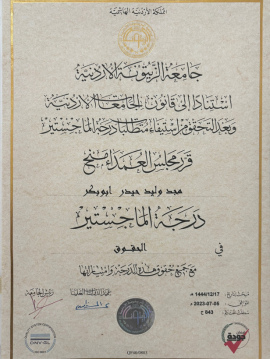 المملكة الأردنية الهاشمية
جامعة الزيتونة الأردنية
استنادًا إلى قانون الجامعات الأردنية
وبعد التحقق من استيفاء متطلبات درجة الماجستير
قرر مجلس العمداء منح
مجد وليد حيدر ابوبكر
درجة الماجستير
في
الحقوق
مع جميع حقوق هذه الدرجة وامتيازاتها
رئيس الجامعة
1444/12/17 هـ
2023-07-05 م
643 ح
جودة